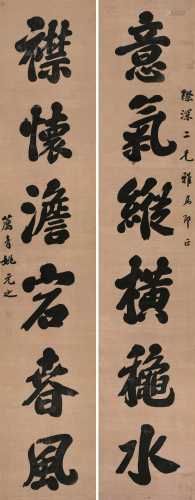 意氣縱橫穐水
襟懷澹宕春風
深二兄雅屬即正
薦青姚元之